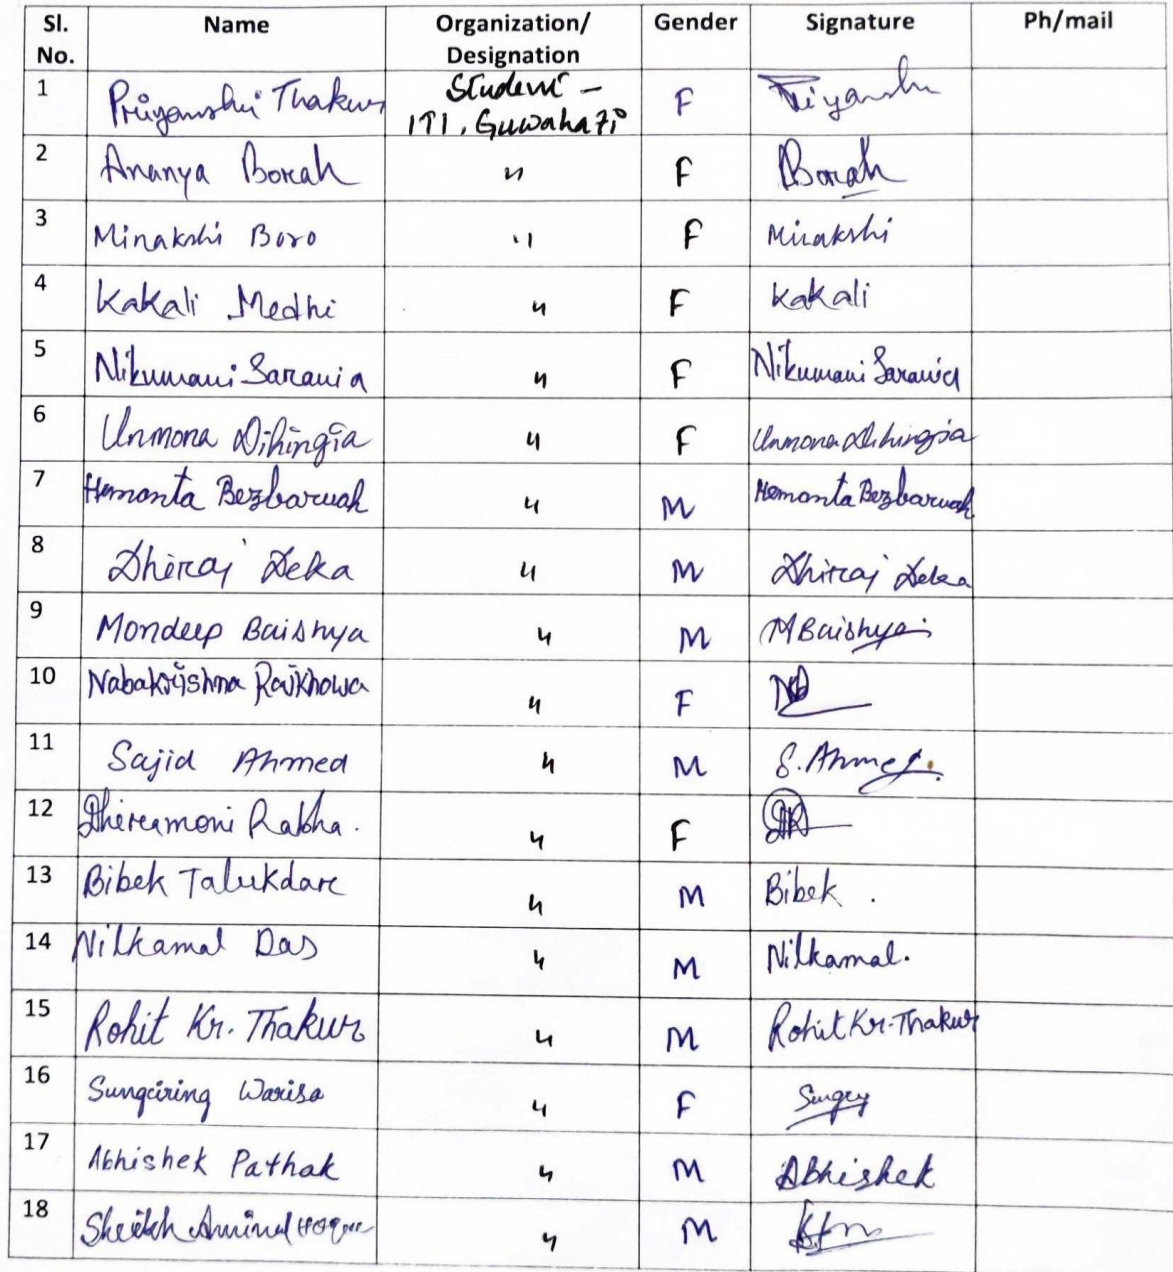 Sl. No. Name Organization/ Designation Gender Signature Ph/mail
1 Priyanshi Thakur Student - ITI, Guwahati F Priyanshi
2 Ananya Borah " F Borah
3 Minakshi Boro " F Minakshi
4 Kakali Medhi " F Kakali
5 Nikumani Sarania " F Nikumani Sarania
6 Unmona Dihingia " F Unmona Dihingia
7 Hemanta Bezbaruah " M Hemanta Bezbaruah
8 Dhiraj Deka " M Dhiraj Deka
9 Mondeep Baishya " M MBaishya
10 Nabakrishna Rajkhowa " F
11 Sajid Ahmed " M S. Ahmed.
12 Dhiramoni Rabha. " F DR
13 Bibek Talukdar " M Bibek .
14 Nilkamal Das " M Nilkamal.
15 Rohit Kr. Thakur " M Rohit Kr. Thakur
16 Sungciring Warisa " F
17 Abhishek Pathak " M Abhishek
18 Sheikh Aminul Hoque " M